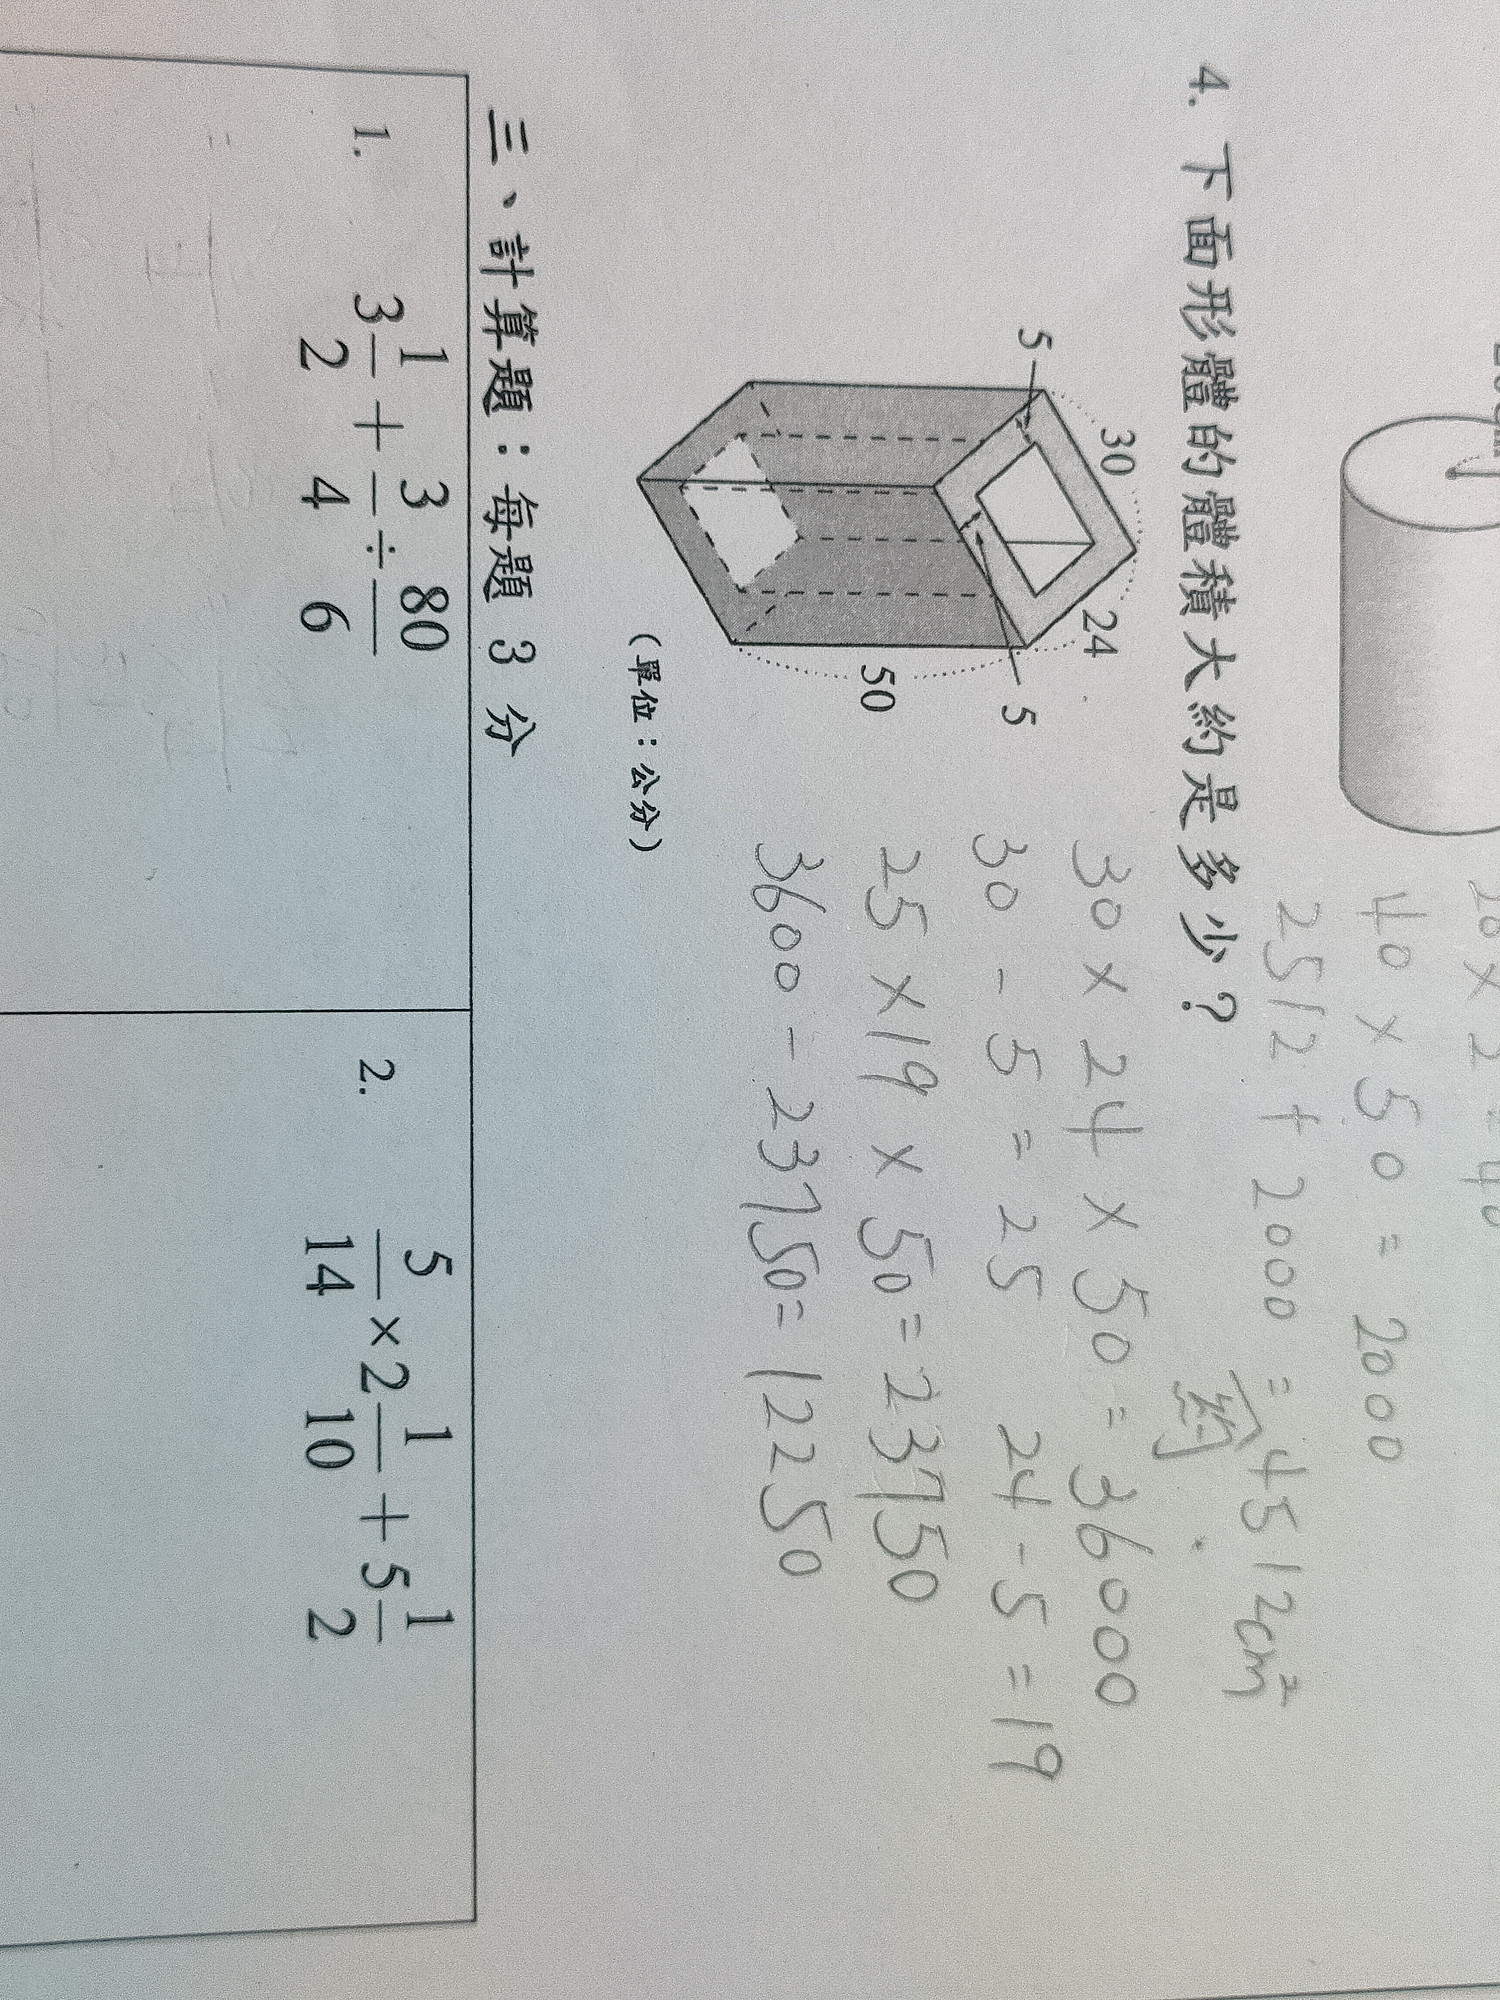 10 × 2 = 40
40 × 50 = 2000
2512 + 2000 = 4512cm²
4. 下面形體的體積大約是多少？
約
30
24
5
5
50
(單位：公分)
30 × 24 × 50 = 36000
30 - 5 = 25 24 - 5 = 19
25 × 19 × 50 = 23750
3600 - 23750 = 12250
三、計算題：每題 3 分
1. 3 1/2 + 3/4 ÷ 80/6
2. 5/14 × 2 1/10 + 5 1/2